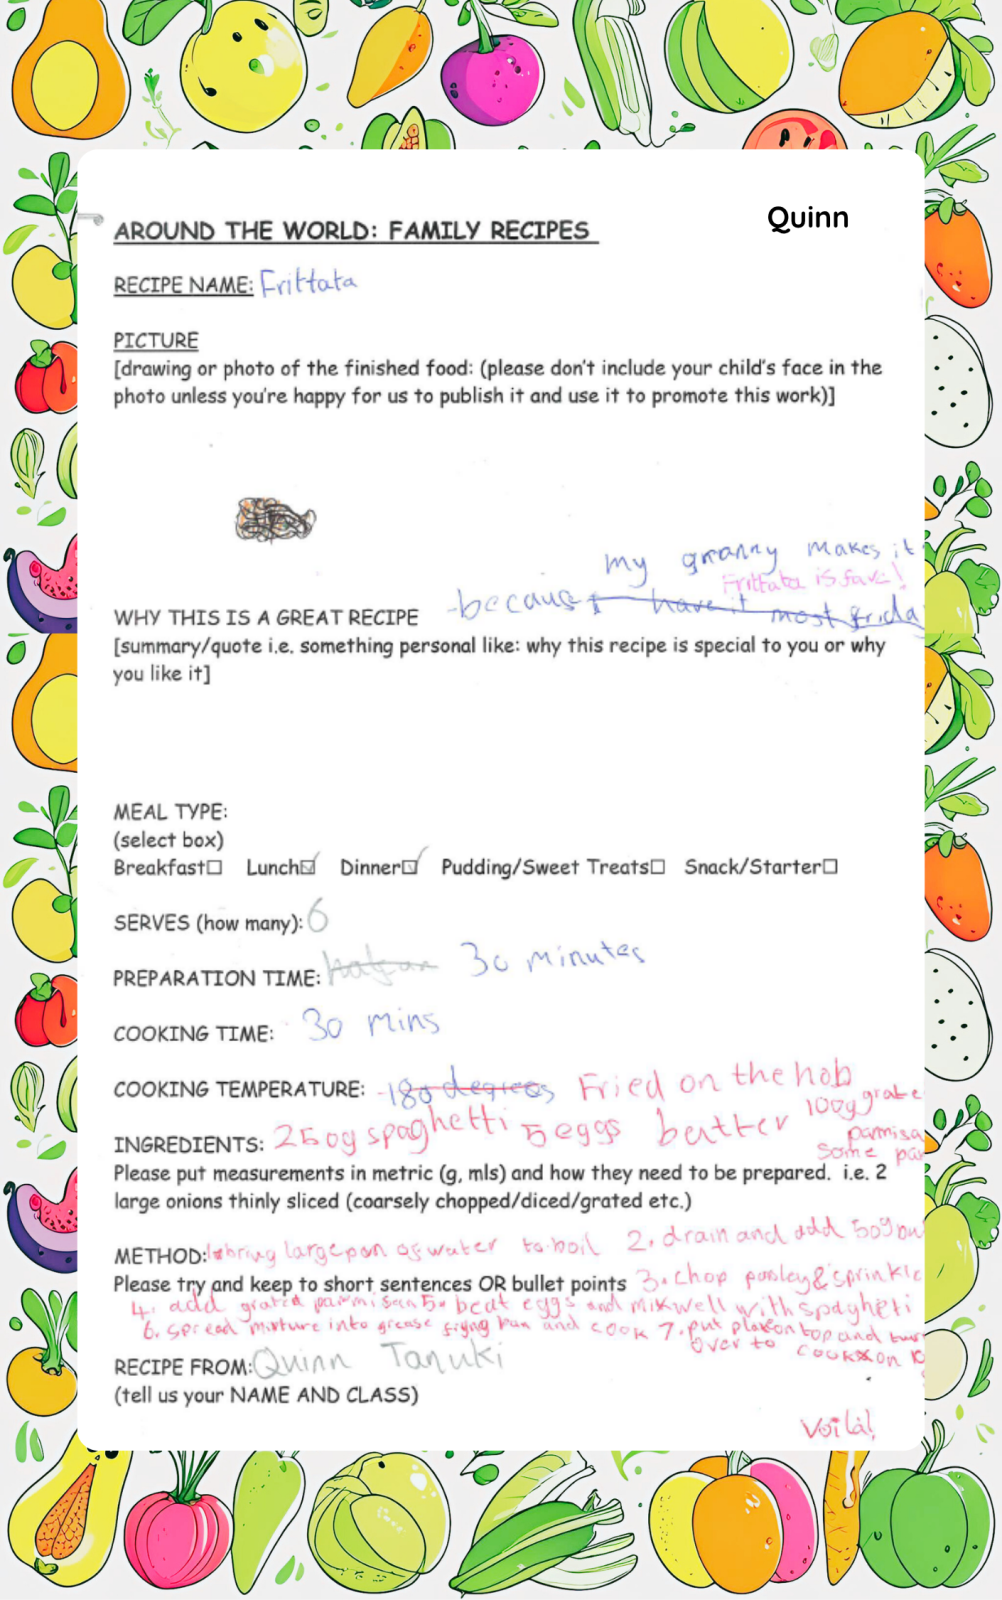 Quinn
AROUND THE WORLD: FAMILY RECIPES
RECIPE NAME: Frittata
PICTURE
[drawing or photo of the finished food: (please don't include your child's face in the
photo unless you're happy for us to publish it and use it to promote this work)]
my granny makes it
Frittata is fave!
-becaus I have it most frida
WHY THIS IS A GREAT RECIPE
[summary/quote i.e. something personal like: why this recipe is special to you or why
you like it]
MEAL TYPE:
(select box)
Breakfast☐ Lunch☑ Dinner☑ Pudding/Sweet Treats☐ Snack/Starter☐
SERVES (how many): 6
PREPARATION TIME: 30 minutes
COOKING TIME: 30 mins
COOKING TEMPERATURE: -180 degrees Fried on the hob
INGREDIENTS: 250g spaghetti 5 eggs butter 100g grate
parmisa
some par
Please put measurements in metric (g, mls) and how they need to be prepared. i.e. 2
large onions thinly sliced (coarsely chopped/diced/grated etc.)
METHOD: bring large pan of water to boil 2. drain and add 50g bu
Please try and keep to short sentences OR bullet points 3. chop parsley & sprinkle
4. add grated parmisan 5. beat eggs and mix well with spagheti
6. spread mixture into grease frying pan and cook 7. put plate on top and tur
over to cook on
RECIPE FROM: Quinn Tanuki
(tell us your NAME AND CLASS)
Voilà!